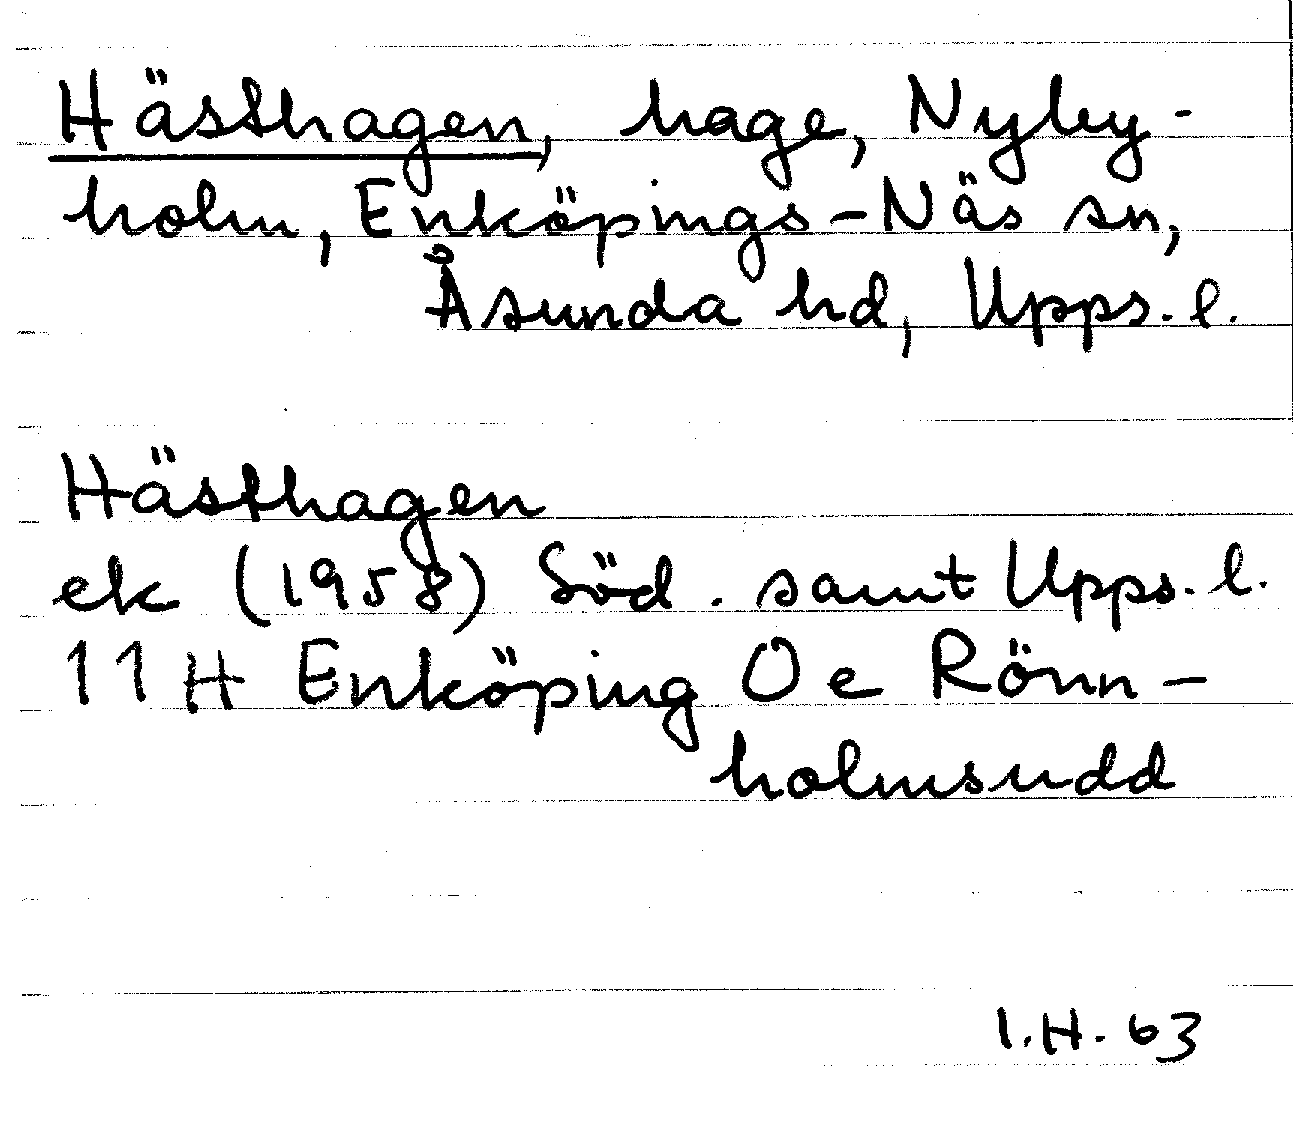 Hästhagen, hage, Nyby-
holm, Enköpings-Näs sn,
Åsunda hd, Upps. l.
Hästhagen
ek (1958) Söd. samt Upps. l.
11 H Enköping Oe Rönn-
holmsudd
I.H. 63